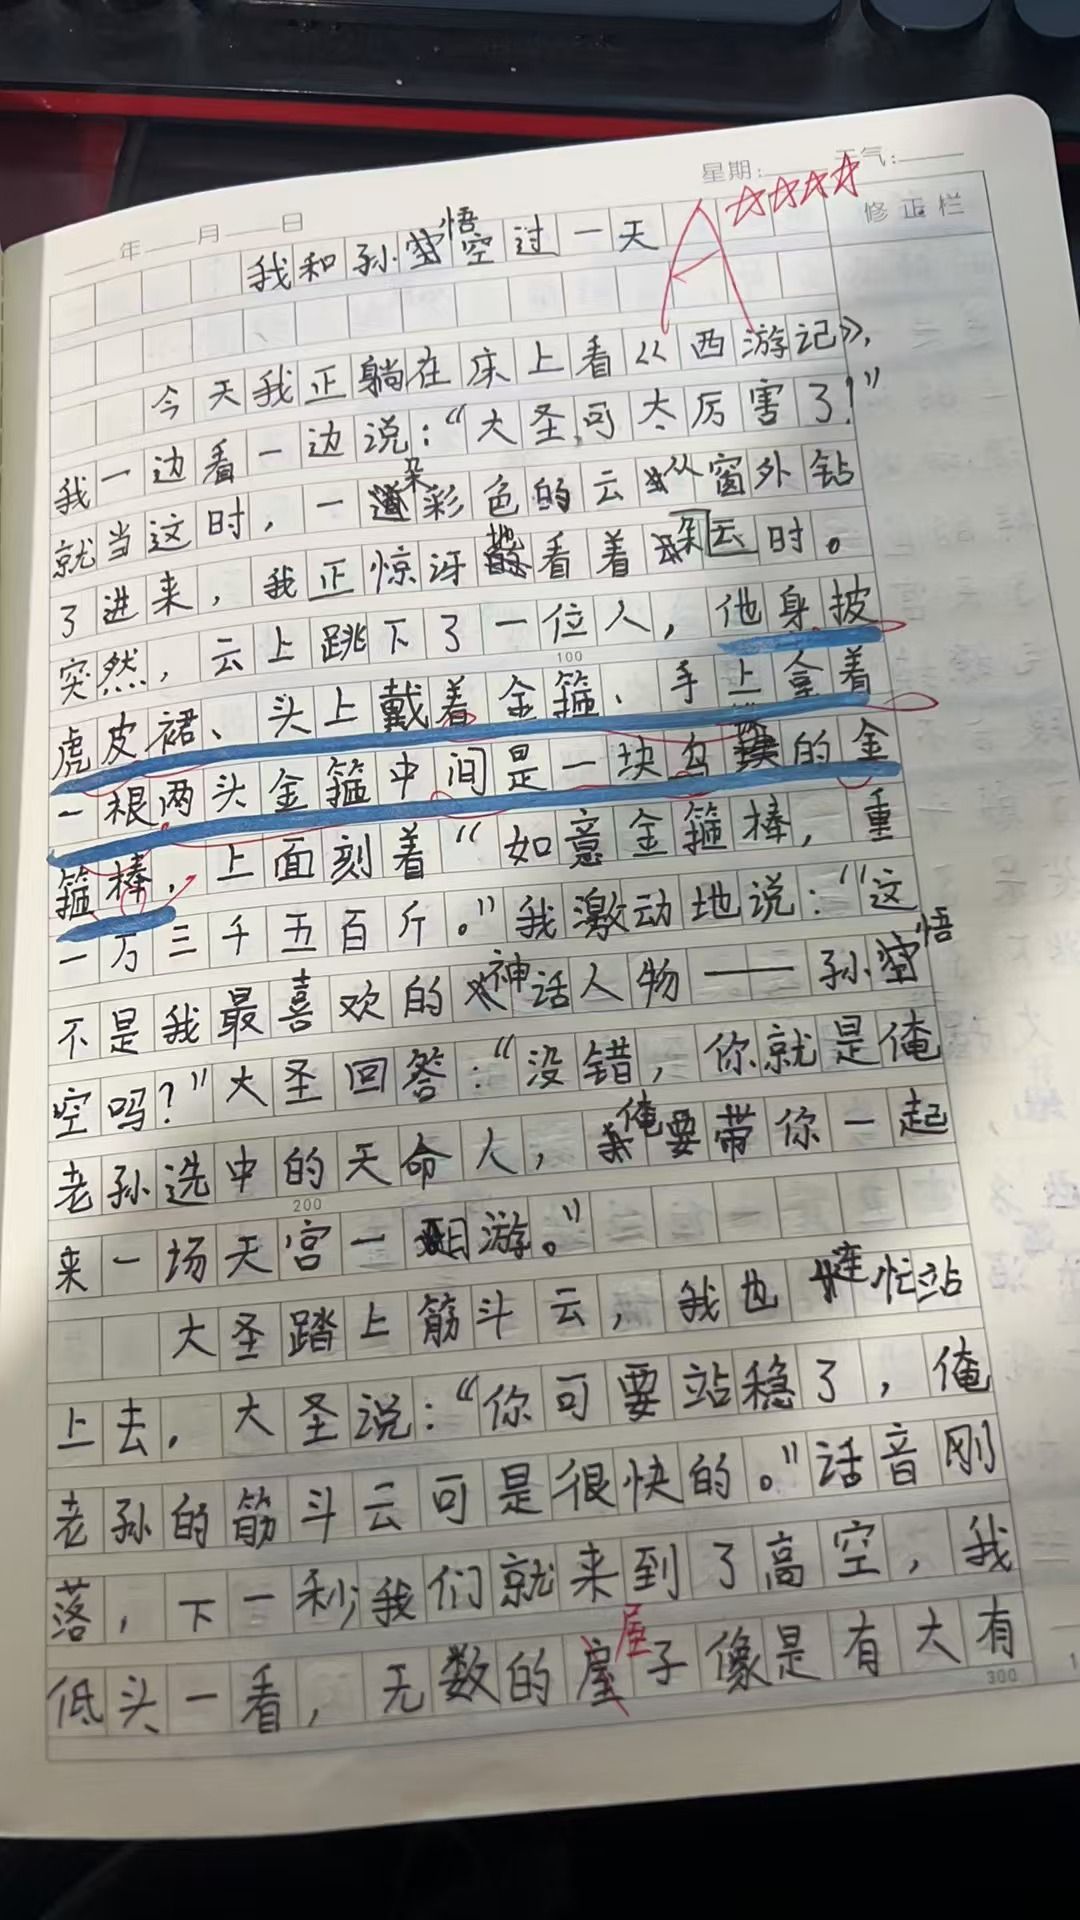 星期:____天气:____
____年____月____日
修正栏
A ☆☆☆☆
我和孙悟空过一天
今天我正躺在床上看《西游记》,
我一边看一边说:“大圣可太厉害了!”
就当这时,一朵彩色的云从窗外钻
了进来,我正惊讶地看着朵云时。
突然,云上跳下了一位人,他身披
100
虎皮裙、头上戴着金箍、手上拿着
一根两头金箍中间是一块乌的金
箍棒,上面刻着“如意金箍棒,重
一万三千五百斤。”我激动地说:“这
不是我最喜欢的神话人物——孙悟
空吗?”大圣回答:“没错,你就是俺
老孙选中的天命人,俺要带你一起
200
来一场天宫一日游。”
大圣踏上筋斗云,我也连忙站
上去,大圣说:“你可要站稳了,俺
老孙的筋斗云可是很快的。”话音刚
落,下一秒我们就来到了高空,我
低头一看,无数的屋子像是有大有
300